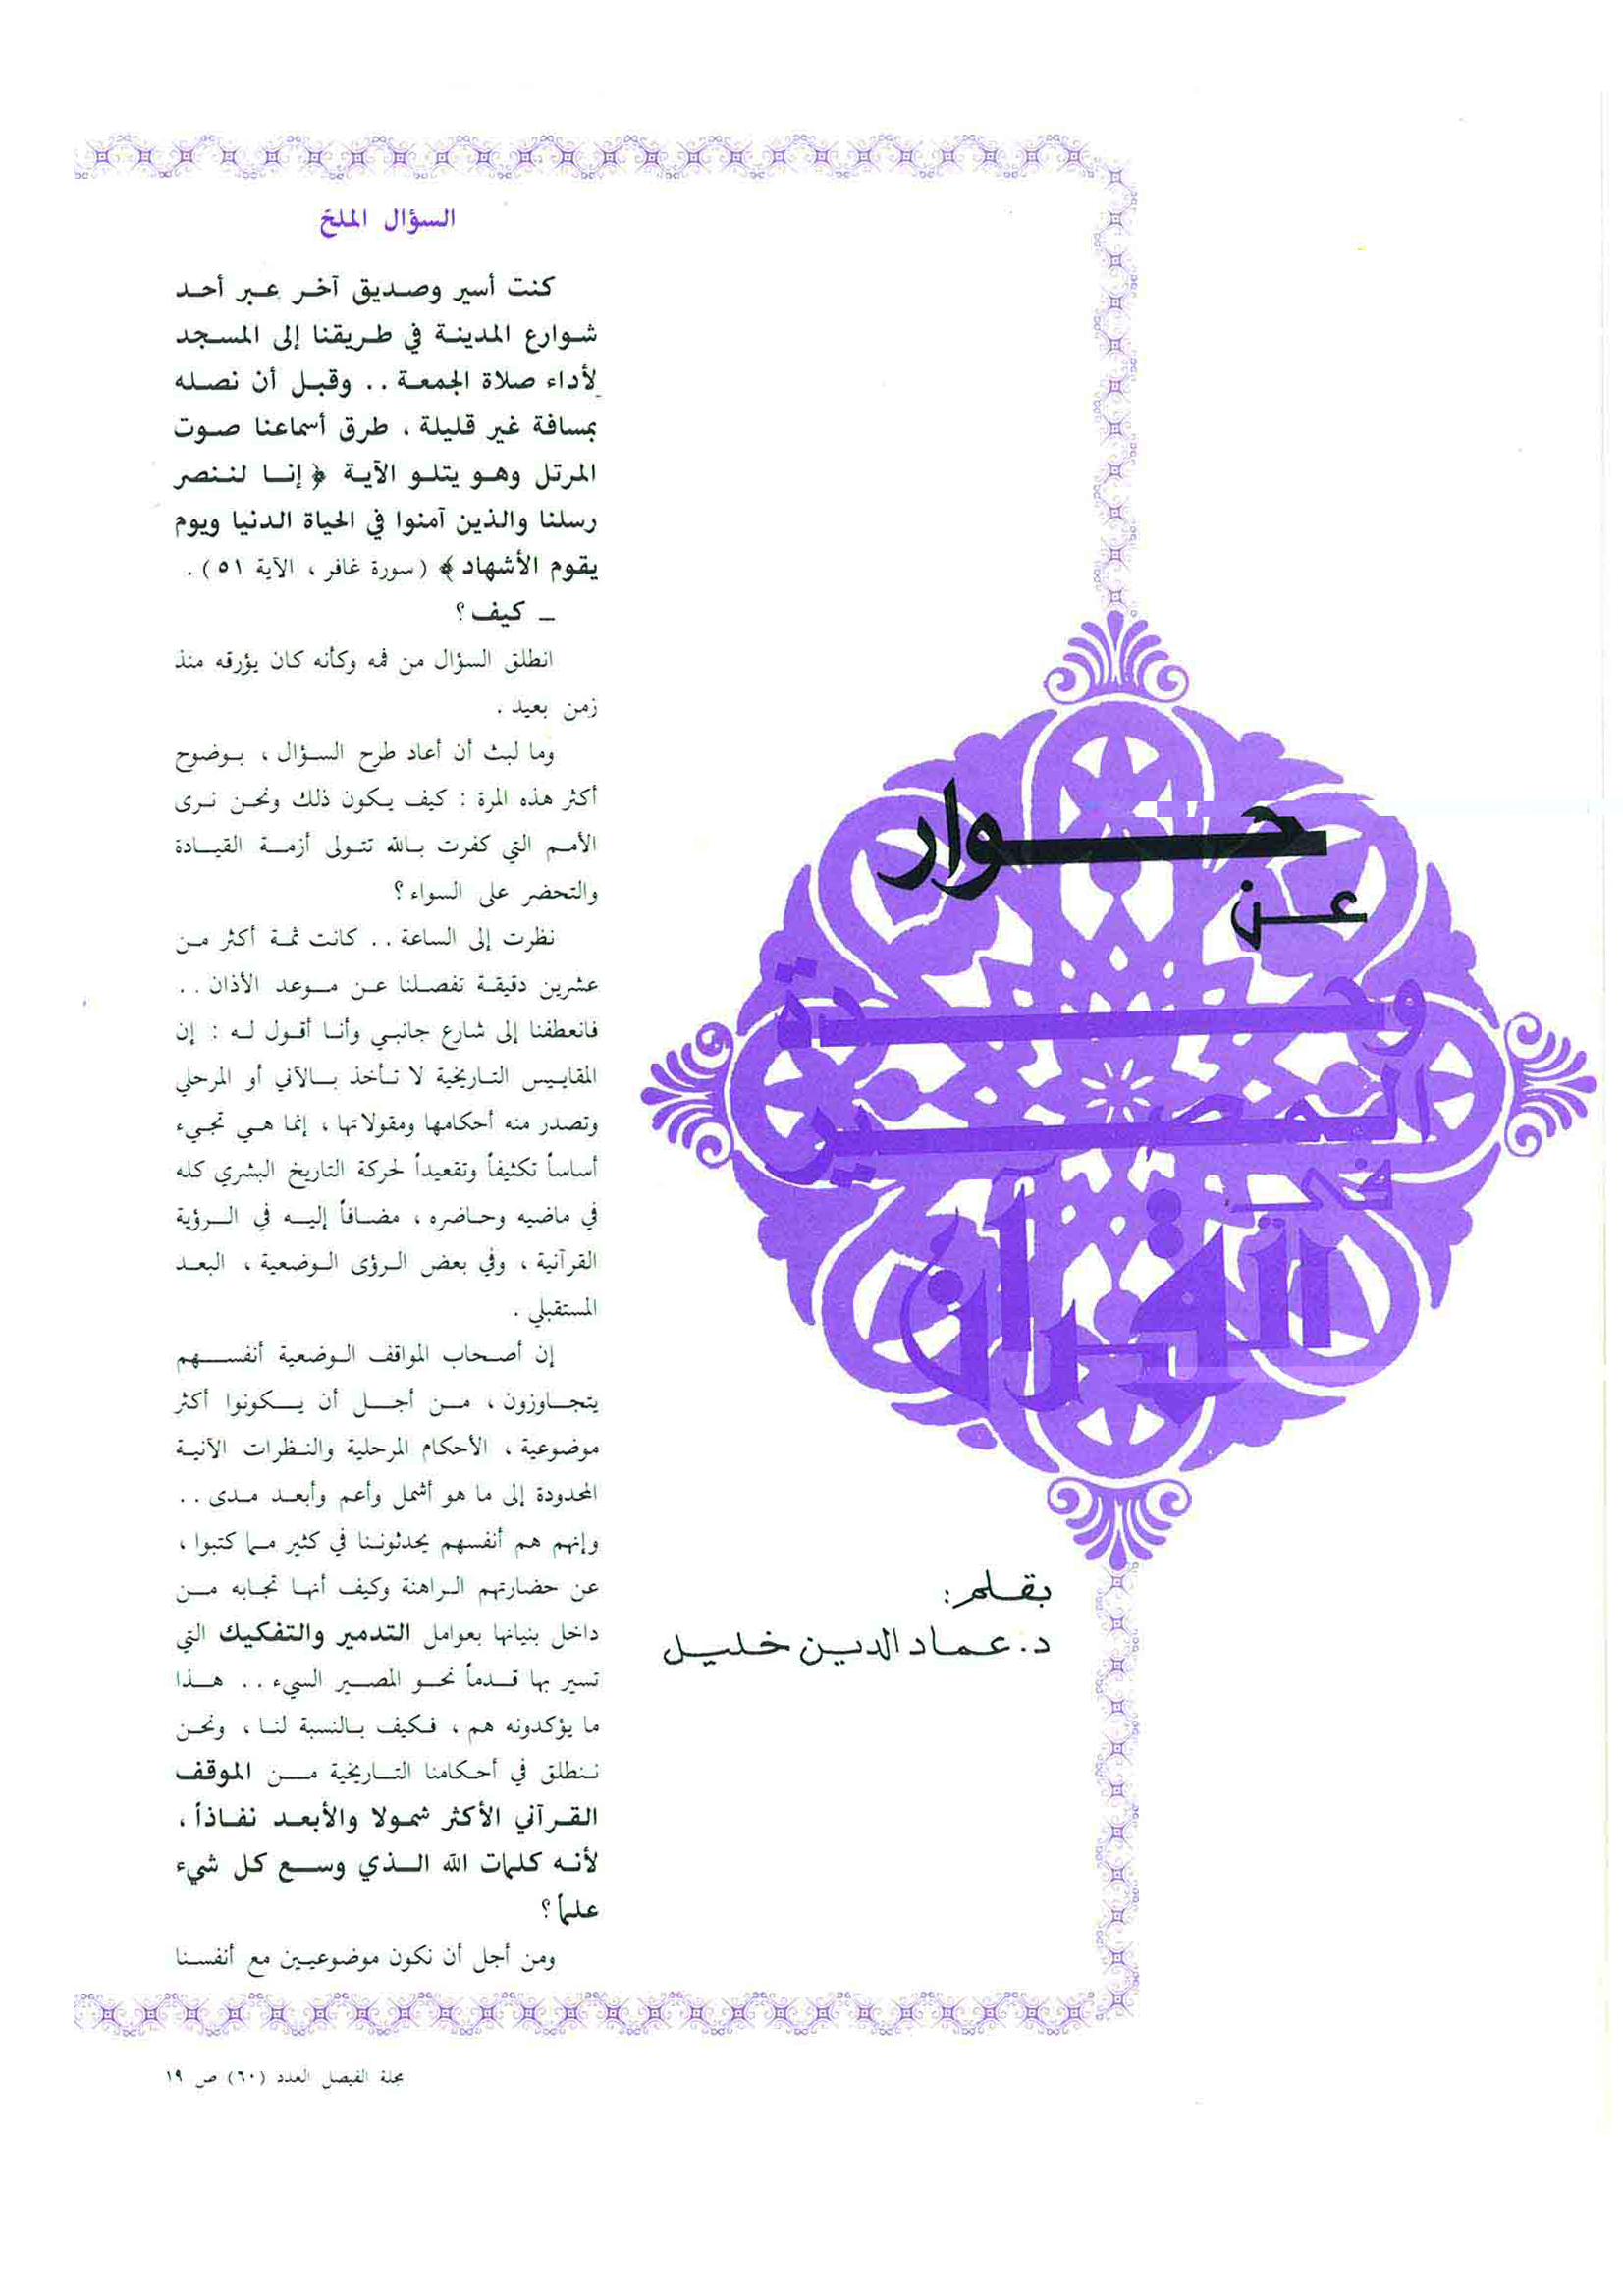 حوار
عن
وحدة
المصير
في
القرآن
بقلم:
د. عماد الدين خليل
السؤال الملحّ
كنت أسير وصديق آخر عبر أحد
شوارع المدينة في طريقنا إلى المسجد
لأداء صلاة الجمعة .. وقبل أن نصله
بمسافة غير قليلة ، طرق أسماعنا صوت
المرتل وهو يتلو الآية ﴿ إنا لننصر
رسلنا والذين آمنوا في الحياة الدنيا ويوم
يقوم الأشهاد ﴾ (سورة غافر ، الآية ٥١) .
ــ كيف ؟
انطلق السؤال من فمه وكأنه كان يؤرقه منذ
زمن بعيد .
وما لبث أن أعاد طرح السؤال ، بوضوح
أكثر هذه المرة : كيف يكون ذلك ونحن نرى
الأمم التي كفرت بالله تتولى أزمة القيادة
والتحضر على السواء ؟
نظرت إلى الساعة .. كانت ثمة أكثر من
عشرين دقيقة تفصلنا عن موعد الأذان ..
فانعطفنا إلى شارع جانبي وأنا أقول له : إن
المقاييس التاريخية لا تأخذ بالآني أو المرحلي
وتصدر منه أحكامها ومقولاتها ، إنما هي تجيء
أساساً تكثيفاً وتقعيداً لحركة التاريخ البشري كله
في ماضيه وحاضره ، مضافاً إليه في الرؤية
القرآنية ، وفي بعض الرؤى الوضعية ، البعد
المستقبلي .
إن أصحاب المواقف الوضعية أنفسهم
يتجاوزون ، من أجل أن يكونوا أكثر
موضوعية ، الأحكام المرحلية والنظرات الآنية
المحدودة إلى ما هو أشمل وأعم وأبعد مدى ..
وإنهم هم أنفسهم يحدثوننا في كثير مما كتبوا ،
عن حضارتهم الراهنة وكيف أنها تجابه من
داخل بنيانها بعوامل التدمير والتفكيك التي
تسير بها قدماً نحو المصير السيء .. هذا
ما يؤكدونه هم ، فكيف بالنسبة لنا ، ونحن
ننطلق في أحكامنا التاريخية من الموقف
القرآني الأكثر شمولا والأبعد نفاذاً ،
لأنه كلمات الله الذي وسع كل شيء
علماً ؟
ومن أجل أن نكون موضوعيين مع أنفسنا
مجلة الفيصل العدد (٦٠) ص ١٩